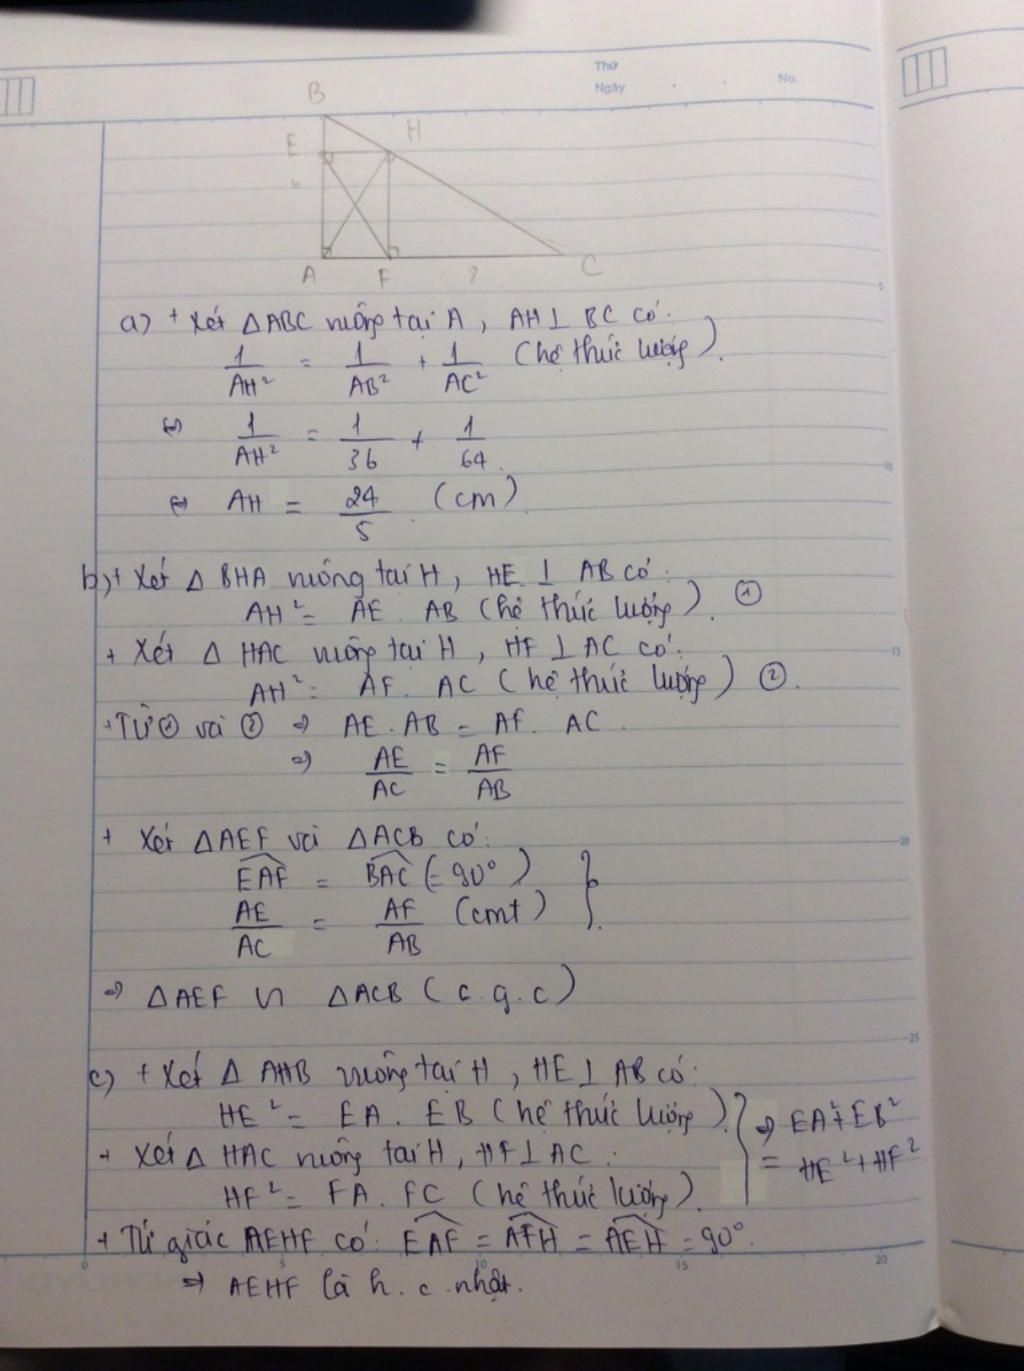 Thứ
Ngày . . No.
B
E H
6
A F ? C
5
a) + Xét △ABC vuông tại A, AH⊥ BC có:
1/AH² = 1/AB² + 1/AC² (hệ thức lượng).
⇔ 1/AH² = 1/36 + 1/64.
10
⇔ AH = 24/5 (cm)
b) + Xét △ BHA vuông tại H, HE ⊥ AB có:
AH² = AE . AB (hệ thức lượng). ①
+ Xét △ HAC vuông tại H, HF ⊥ AC có:
15
AH² = AF. AC (hệ thức lượng) ②.
+ Từ ① và ② ⇒ AE . AB = AF. AC.
⇒ AE/AC = AF/AB
+ Xét △AEF và △ACB có:
20
EAF = BAC (= 90°)
AE/AC = AF/AB (cmt)
⇒ △AEF ∽ △ACB (c.g.c)
25
c) + Xét △ AHB vuông tại H, HE⊥ AB có:
HE² = EA . EB (hệ thức lượng). ⇒ EA²+EB²
+ Xét △ HAC vuông tại H, HF⊥AC: = HE²+HF²
HF² = FA . FC (hệ thức lượng).
+ Tứ giác AEHF có: EAF = AFH = AEH = 90°.
0 5 10 15 20
⇒ AEHF là h.c.nhật.